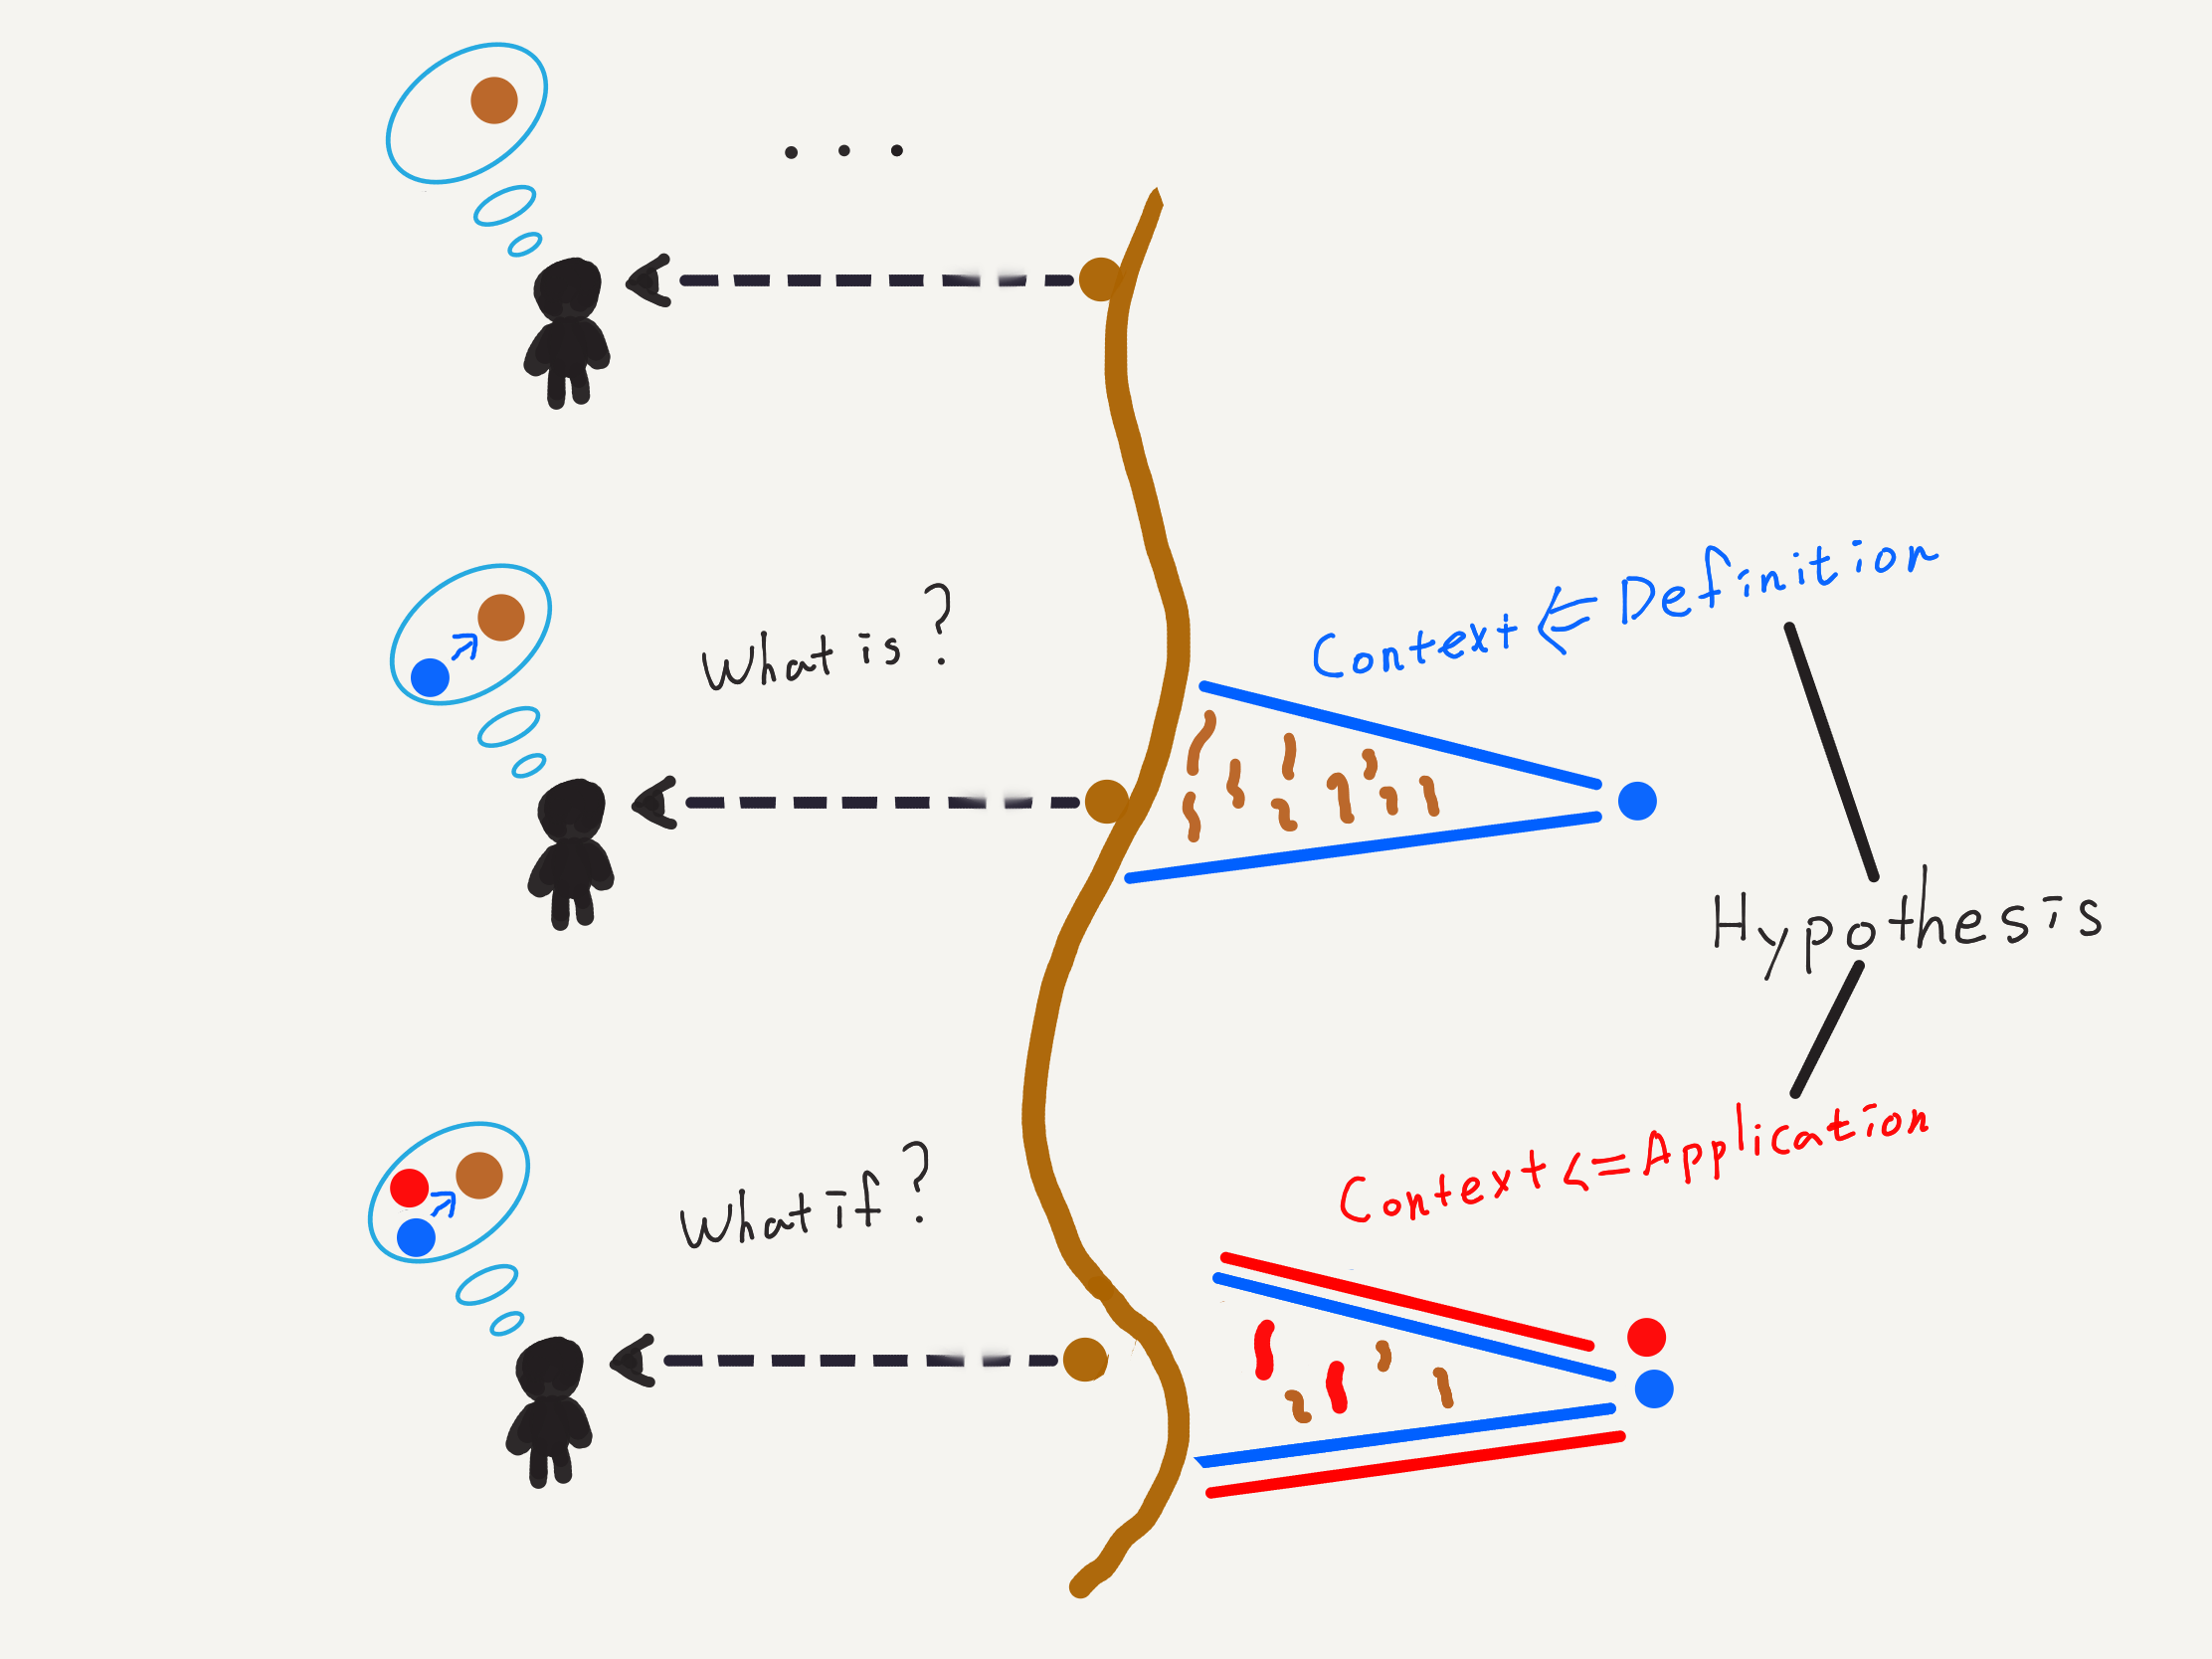 . . .
What is ?
Context <= Definition
Hypothesis
What if ?
Context <= Application